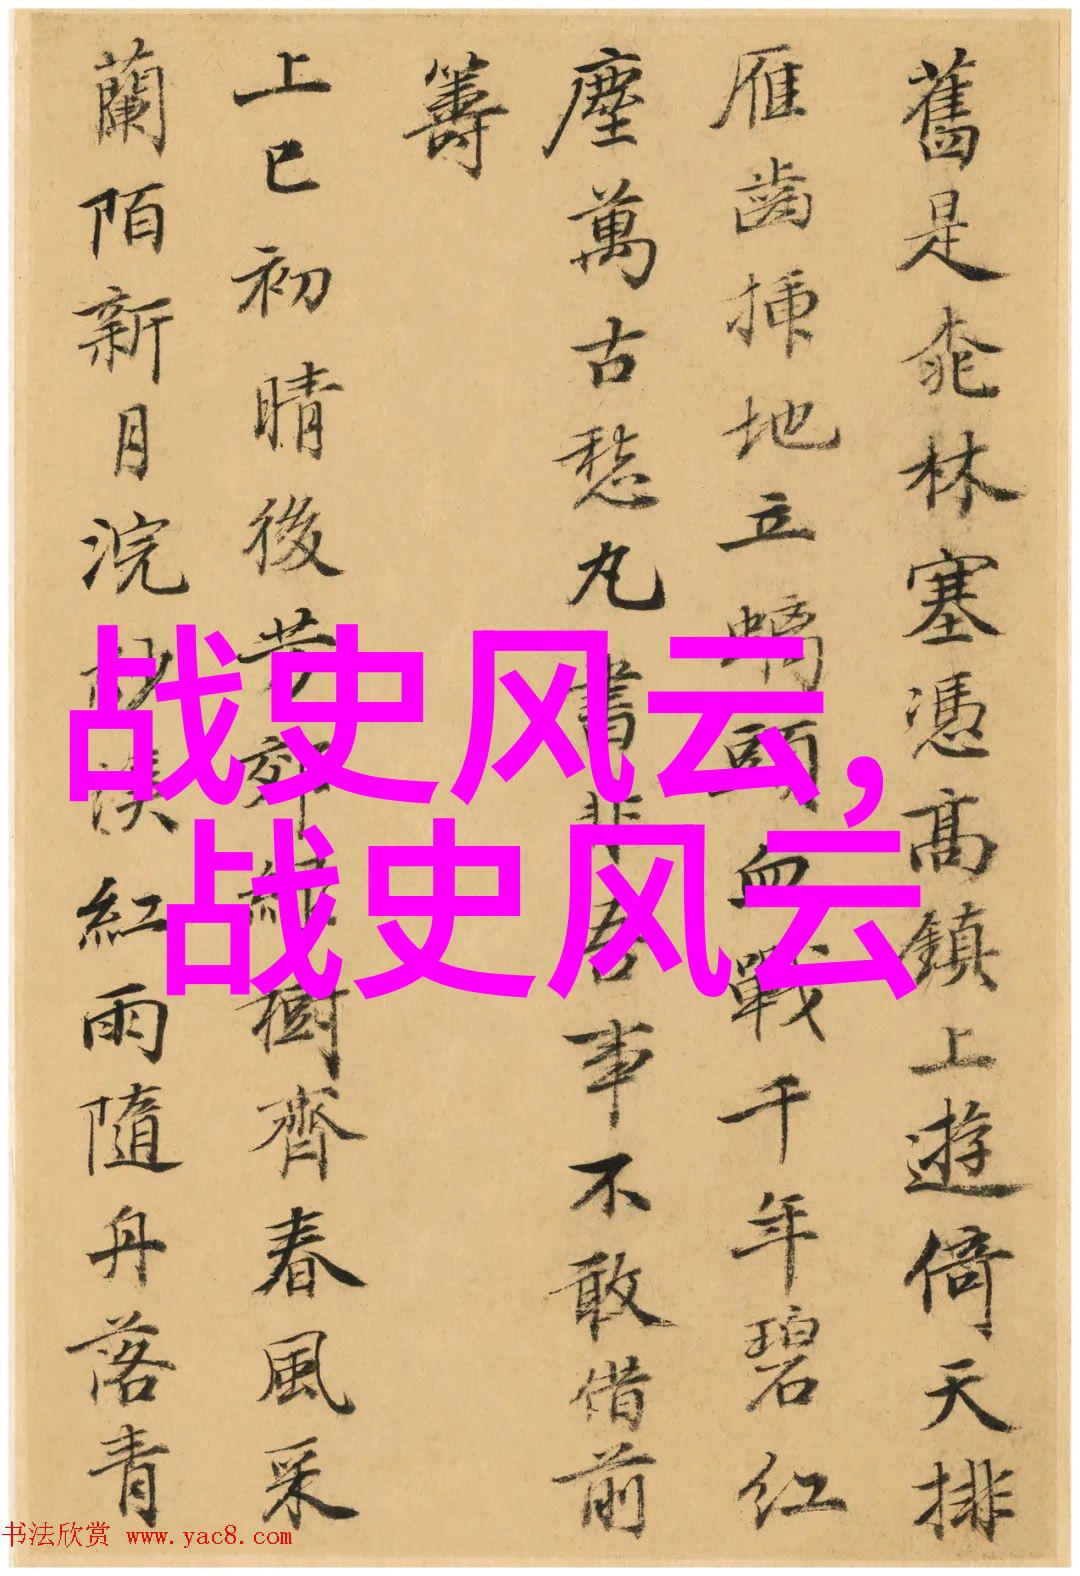 舊是桃林塞憑高鎮上遊倚天排
雁齒插地立螭頭血戰千年碧紅
塵萬古愁丸書非吾事不敢借前
籌
上巳初晴後芳郊綠樹齊春風采
蘭陌新月浣紗溪紅雨隨舟落青
战史风云，
战史风云
书法欣赏 www.yac8.com